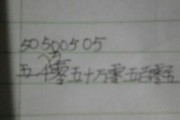 50500505
五千零五十万零五百零五